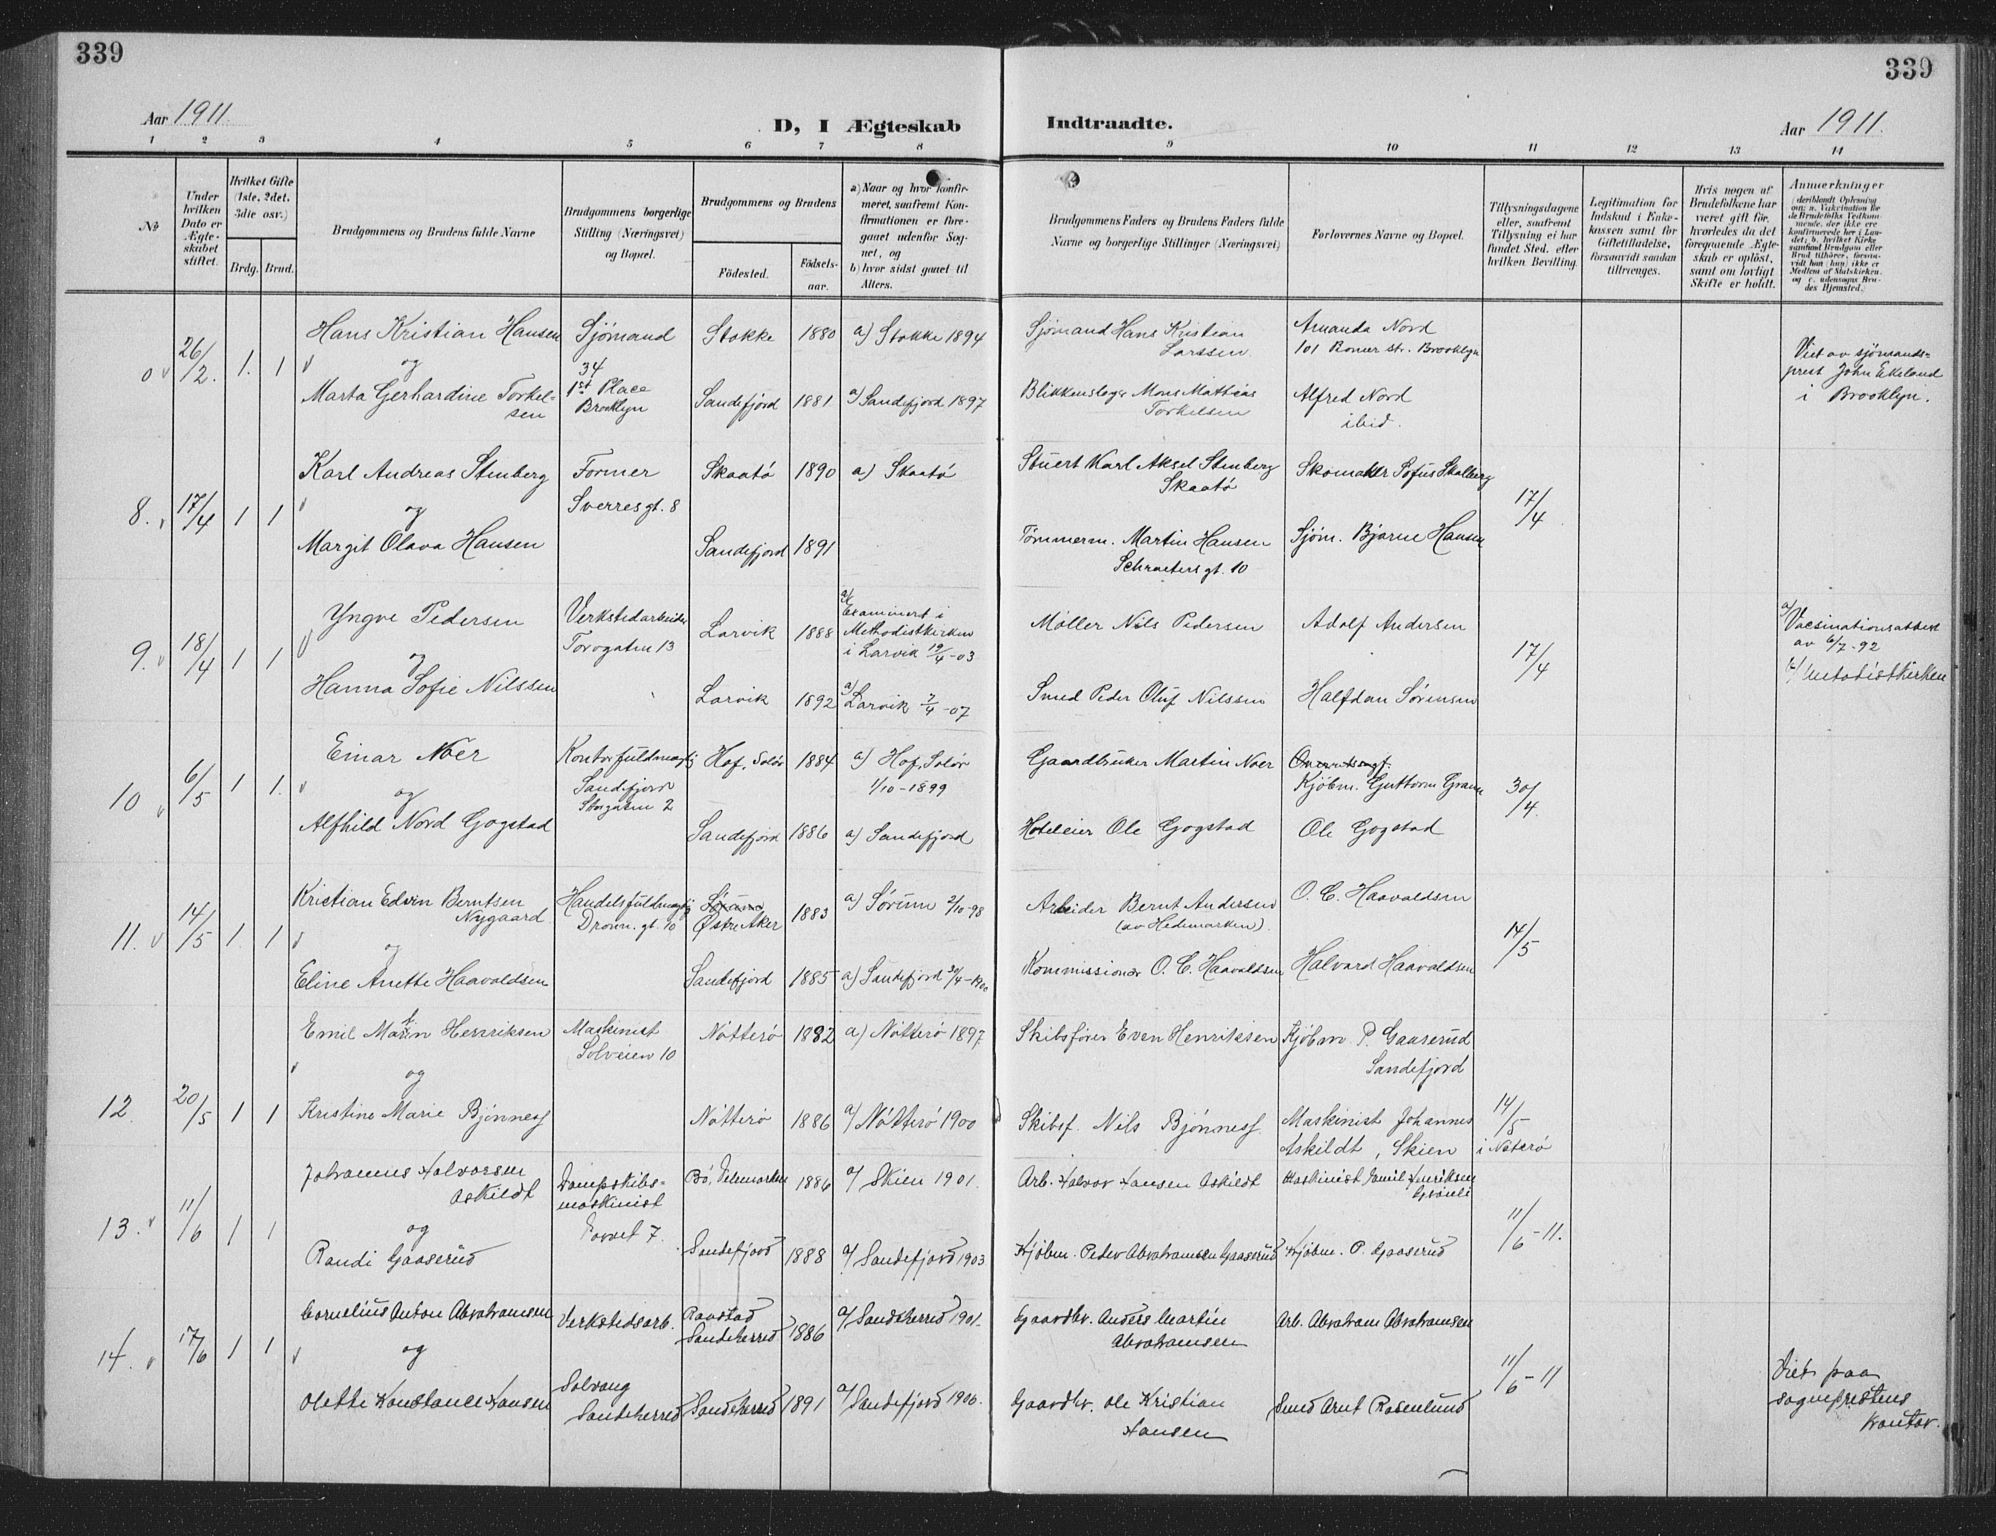 339
339
Aar 1911.
D, I Ægteskab Indtraadte.
Aar 1911.
1 2 3 4 5 6 7 8 9 10 11 12 13 14
No
Under hvilken Dato er Ægteskabet stiftet.
Hvilket Gifte (1ste, 2det, 3die osv.)
Brdg. Brud.
Brudgommens og Brudens fulde Navne
Brudgommens borgerlige Stilling (Næringsvei) og Bopæl.
Brudgommens og Brudens
Fødested.
Fødselsaar.
a) Naar og hvor konfirmeret, saafremt Konfirmationen er foregaaet udenfor Sognet, og
b) hvor sidst gaaet til Alters.
Brudgommens Faders og Brudens Faders fulde Navne og borgerlige Stillinger (Næringsvei)
Forlovernes Navne og Bopæl.
Tillysningsdagene eller, saafremt Tillysning ei har fundet Sted, efter hvilken Bevilling.
Legitimation for Indskud i Enkekassen samt for Giftetilladelse, forsaavidt saadan tiltrænges.
Hvis nogen af Brudefolkene har været gift før, hvorledes da det foregaaende Ægteskab er opløst, samt om lovligt Skifte er holdt.
Anmerkninger
0 26/2. 1. 1
Hans Kristian Hansen
og
Marta Gerhardine Torkelsen
Sjømand
34
1st Place
Brooklyn
Stokke 1880 a) Stokke 1894
Sandefjord 1881 a) Sandefjord 1897
Sjømand Hans Kristian Larssen
Blikkenslager Mons Mattias Torkelsen
Amanda Nord
101 str. Brooklyn
Alfred Nord
ibid.
Viet av sjømandsprest John Ekeland
i Brooklyn.
8. 17/4 1 1
Karl Andreas Stenberg
og
Margit Olava Hansen
Former
Sverresgt. 8
Skaatø 1890 a) Skaatø
Sandefjord 1891
Stuert Karl Aksel Stenberg
Skaatø
Tømmerm. Martin Hansen
Schrøtersgt. 10
Skomaker Sofus Skalberg
Sjøm. Bjarne Hansen
17/4
9. 18/4 1 1
Yngve Pedersen
og
Hanna Sofie Nilssen
Verkstedarbeider
Torvgaten 13
Larvik 1888
Examinert i
Methodistkirken
i Larvik 19/4-03
Larvik 1892 a) Larvik 7/4-07
Møller Nils Pedersen
Smed Peder Oluf Nilssen
Adolf Andersen
Halfdan Sørensen
17/4
a) Vacsinationsattest
av 6/7-92
b) Metodistkirken
10 6/5 1 1.
Einar Noer
og
Alfhild Nord Gogstad
Kontorfuldmægtig
Sandefjord
Storgaten 2
Hof, Solør 1884 a) Hof, Solør
1/10-1899
Sandefjord 1886 a) Sandefjord
Gaardbruker Martin Noer
Hoteleier Ole Gogstad
Kjøbm. Guttorm Gran
Ole Gogstad
30/4.
11. 14/5 1. 1
Kristian Edvin Berntsen
Nygaard
og
Eline Anette Haavaldsen
Handelsfuldmægtig
Dronn. gt. 10
Østre Aker 1883 a) Sørum 2/10-98
Sandefjord 1885 a) Sandefjord 30/4-1900
Arbeider Bernt Andersen
(av Hedemarken).
Kommissionær O. C. Haavaldsen
O. C. Haavaldsen
Halvard Haavaldsen
14/5
12 20/5 1 1
Emil Martin Henriksen
og
Kristine Marie Bjønness
Maskinist
Solveien 10
Nøtterø 1882 a) Nøtterø 1897
Nøtterø 1886 a) Nøtterø 1900
Skibsfører Even Henriksen
Skibsf. Nils Bjønness.
Kjøbm. P. Gaaserud
Sandefjord
Maskinist Johannes
Askildt, Skien
14/5
i Nøterø
13. 11/6 1 1
Johannes Halvorsen
Askildt
og
Randi Gaaserud
Dampskibsmaskinist
Torvet 7.
Bø, Telemarken 1886 a) Skien 1901.
Sandefjord 1888 a) Sandefjord 1903
Arb. Halvor Hansen Askildt
Kjøbm. Peder Abrahamsen Gaaserud
Maskinist Emil Henriksen
Kjøbm. P. Gaaserud
11/6-11.
14. 17/6 1 1
Cornelius Anton Abrahamsen
og
Olette Konstance Hansen
Verkstedsarb.
Solvang
Sandeherred
Raastad
Sandeherred 1886 a) Sandeherred 1901.
Sandeherred 1891 a) Sandefjord 1906.
Gaardbr. Anders Martin
Abrahamsen
Gaardbr. Ole Kristian
Hansen
Arb. Abraham Abrahamsen
Smed Arnt Rosenlund
11/6-11
Viet paa
sogneprestens
kontor.